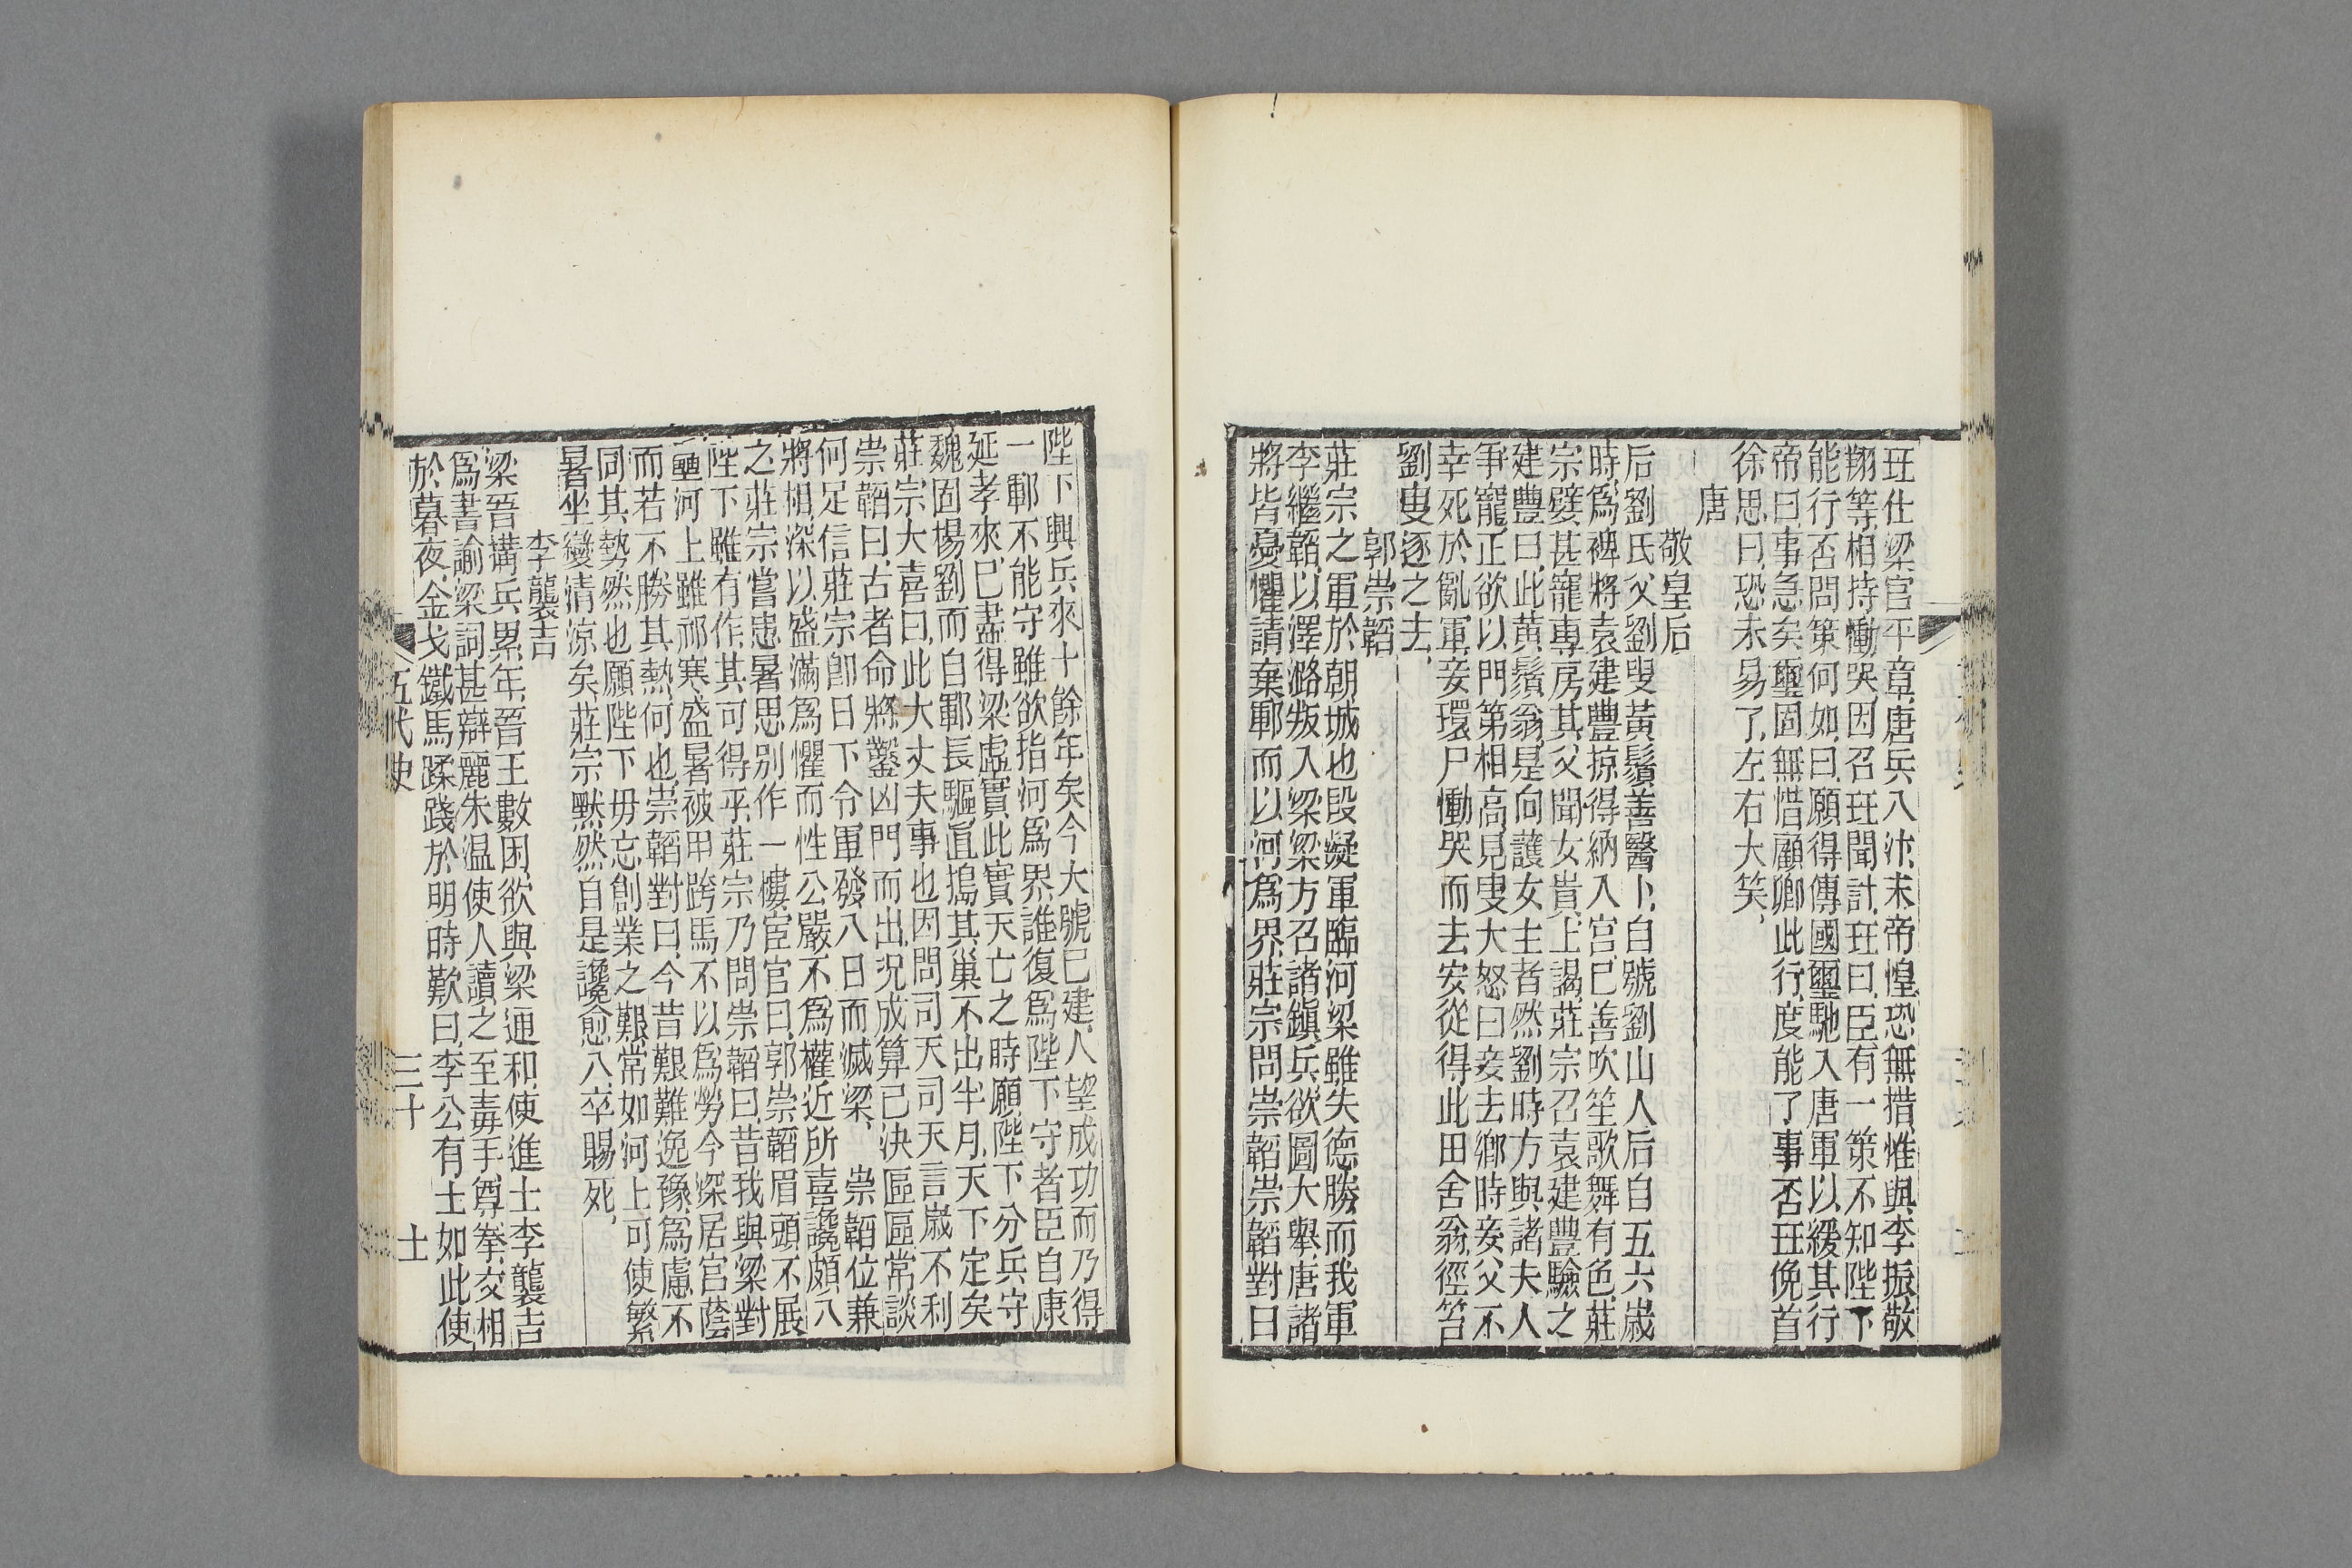 珏仕梁官平章唐兵入汴末帝惶恐無措惟與李振敬
翔等相持慟哭因召珏問計珏曰臣有一策不知陛下
能行否問策何如曰願得傳國璽馳入唐軍以緩其行
帝曰事急矣璽固無惜顧卿此行度能了事否珏俛首
徐思曰恐未易了左右大笑
唐
敬皇后
后劉氏父劉叟黃鬚善醫卜自號劉山人后自五六歲
時爲裨將袁建豐掠得納入宮巳善吹笙歌舞有色莊
宗嬖甚寵專房其父聞女貴上謁莊宗召袁建豐驗之
建豐曰此黃鬚翁是向護女主者然劉時方與諸夫人
爭寵正欲以門第相高見叟大怒曰妾去鄉時妾父不
幸死於亂軍妾環尸慟哭而去安從得此田舍翁徑笞
劉叟逐之去
郭崇韜
莊宗之軍於朝城也段凝軍臨河梁雖失德勝而我軍
李繼韜以澤潞叛入梁梁方召諸鎭兵欲圖大舉唐諸
將皆憂懼請棄鄆而以河爲界莊宗問崇韜崇韜對曰
陛下興兵來十餘年矣今大號巳建人望成功而乃得
一鄆不能守雖欲指河爲界誰復爲陛下守者臣自康
延孝來巳盡得梁虛實此實天亡之時願陛下分兵守
魏固楊劉而自鄆長驅直擣其巢不出半月天下定矣
莊宗大喜曰此大丈夫事也因問司天司天言歲不利
崇韜曰古者命將鑿凶門而出況成算已決區區常談
何足信莊宗卽日下令軍發八日而滅梁 崇韜位兼
將相深以盛滿爲懼而性公嚴不爲權近所喜讒頗入
之莊宗嘗患暑思別作一樓宦官曰郭崇韜眉頭不展
陛下雖有作其可得乎莊宗乃問崇韜曰昔我與梁對
壘河上雖祁寒盛暑被甲跨馬不以爲勞今深居宮蔭
而若不勝其熱何也崇韜對曰今昔艱難逸豫爲慮不
同其勢然也願陛下毋忘創業之艱常如河上可使繁
暑坐變清涼矣莊宗默然自是讒愈入卒賜死
李襲吉
梁晉搆兵累年晉王數困欲與梁通和使進士李襲吉
爲書諭梁詞甚辯麗朱温使人讀之至毒手尊拳交相
於暮夜金戈鐵馬蹂踐於明時歎曰李公有士如此使
五代史
三十
士